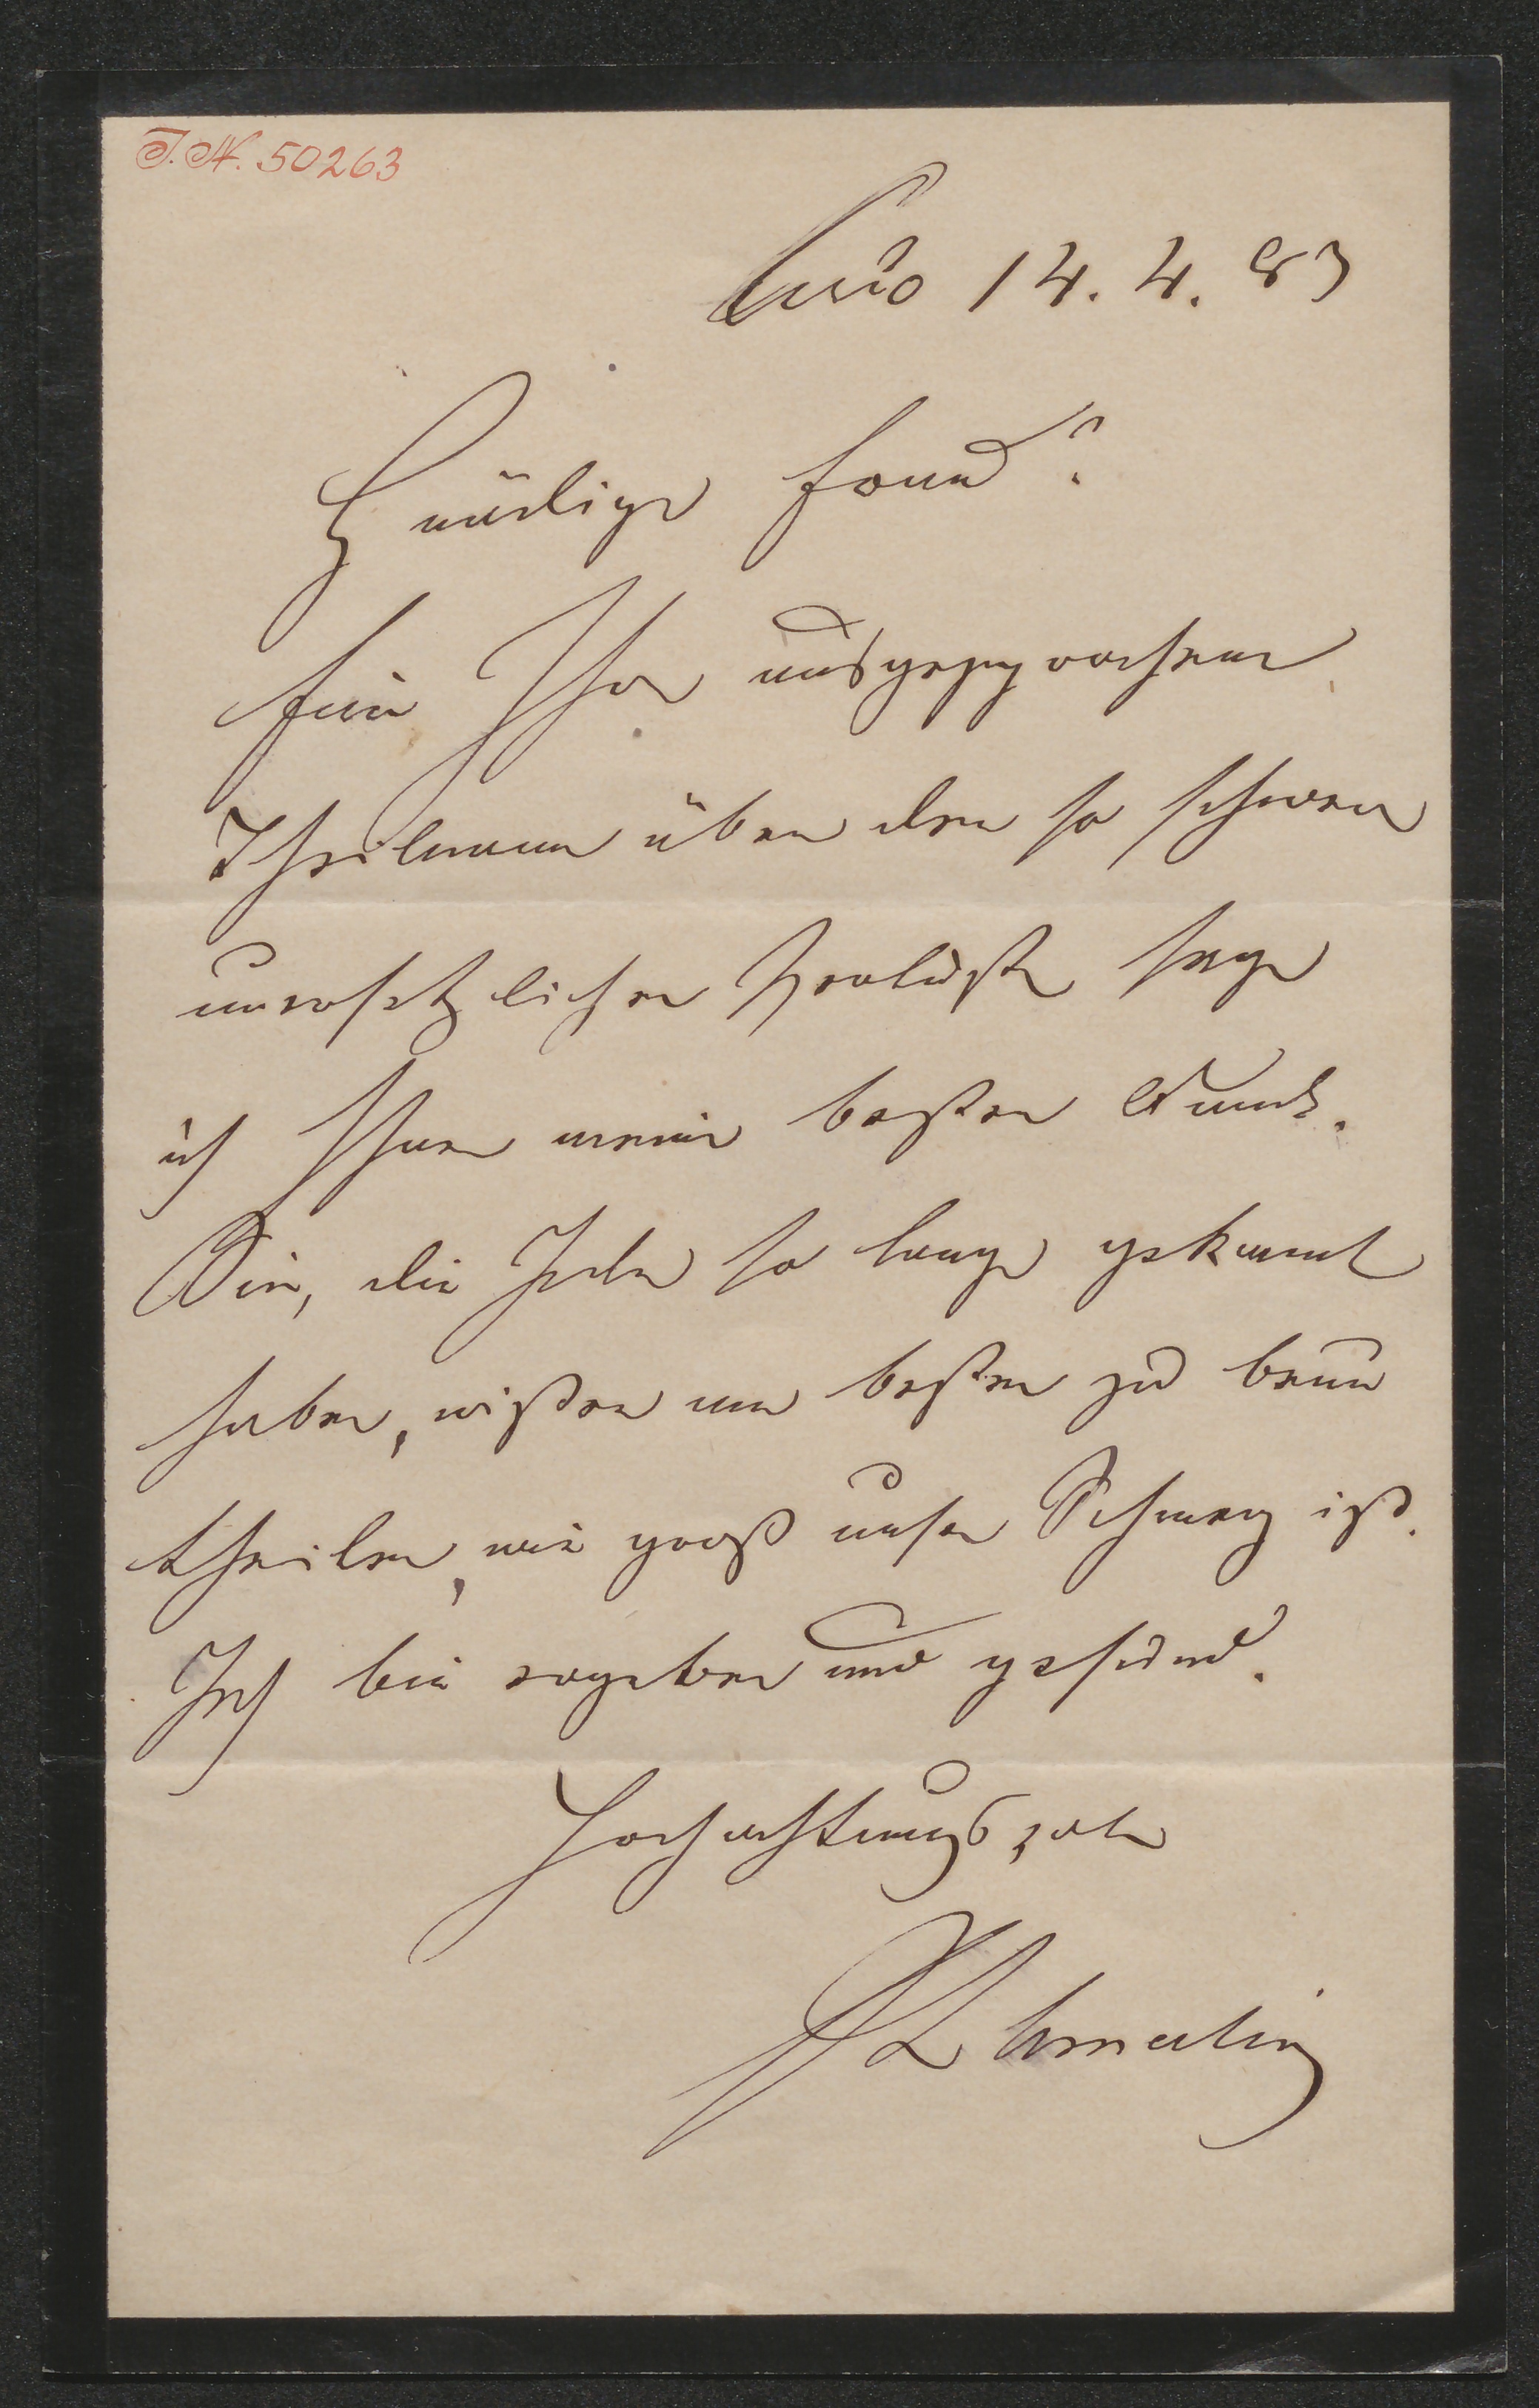 I.N. 50263
14. 4. 83
Gnädige Frau!
Für Ihre ausgesprochene
Theilname über den so schweren
unersetzlichen Verluste sage
ich Ihnen meinen besten Dank.
Sie, die so lange gekannt
haben, wißen am besten zu beur
theilen, wie groß unser Schmerz ist.
Ich bin ergeben und gefasst.
Hochachtungsvoll